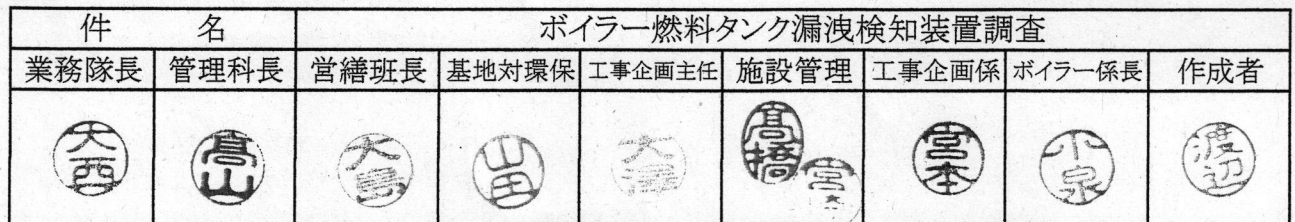 件 名 ボイラー燃料タンク漏洩検知装置調査
業務隊長 管理科長 営繕班長 基地対環保 工事企画主任 施設管理 工事企画係 ボイラー係長 作成者
大西 髙山 大島 山田 大澤 髙橋 宮本 小泉 渡辺